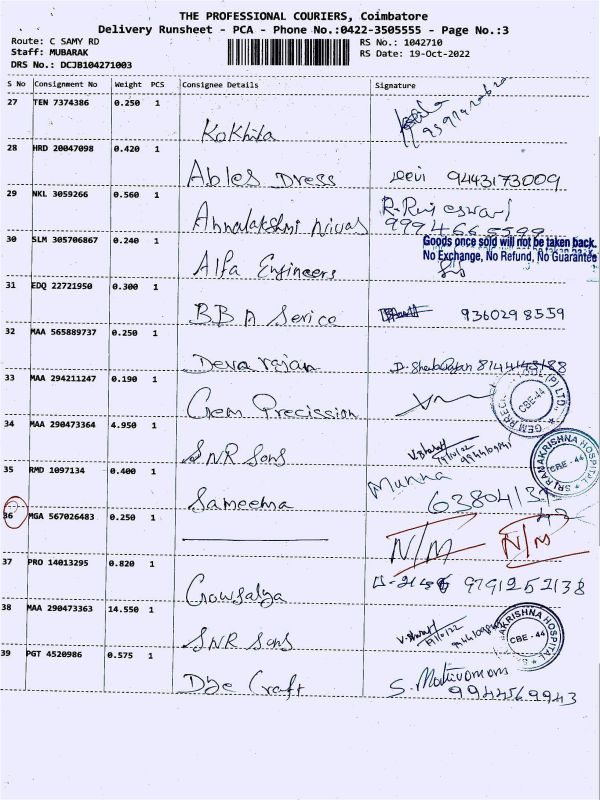 THE PROFESSIONAL COURIERS, Coimbatore
Delivery Runsheet - PCA - Phone No.:0422-3505555 - Page No.:3
Route: C SAMY RD
RS No.: 1042710
Staff: MUBARAK
RS Date: 19-Oct-2022
DRS No.: DCJB104271003
S No Consignment No Weight PCS Consignee Details Signature
27 TEN 7374386 0.250 1
Kokhila
28 HRD 20047098 0.420 1
Ables Dress 9443173009
29 NKL 3059266 0.560 1
Annalakshmi nivas
30 SLM 305706867 0.240 1
Goods once sold will not be taken back.
No Exchange, No Refund, No Guarantee
Alfa Engineers
31 EDQ 22721950 0.300 1
BBA Serice 9360298559
32 MAA 565889737 0.250 1
Devarajan
33 MAA 294211247 0.190 1
Gem Precission
CBE-44
34 MAA 290473364 4.950 1
SNR Sons
SRI RAMAKRISHNA HOSPITAL
CBE-44
35 RMD 1097134 0.400 1
Munna
Sameema
36 MGA 567026483 0.250 1
N/M N/M
37 PRO 14013295 0.820 1
Gowsalya 9791252138
38 MAA 290473363 14.550 1
SNR Sons
CBE-44
39 PGT 4520986 0.575 1
Dye Craft
9944569943